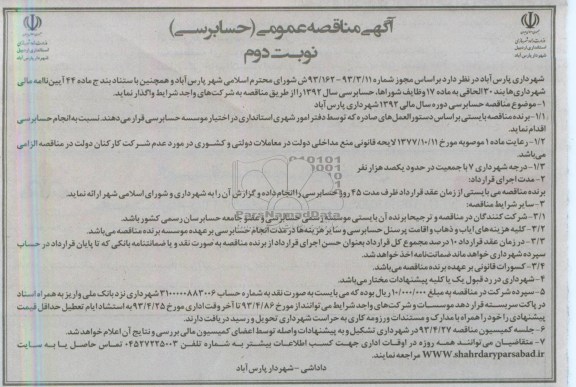 آگهی مناقصه عمومی (حسابرسی)
نوبت دوم
شهرداری پارس آباد در نظر دارد براساس مجوز شماره ۹۳/۳/۱۱ - ۹۳/۱۶۲ش شورای محترم اسلامی شهر پارس آباد و همچنین با استناد بند ج ماده ۴۴ آیین نامه مالی
شهرداری ها بند ۳۰ الحاقی به ماده ۱۷ وظایف شوراها، حسابرسی سال ۱۳۹۲ را از طریق مناقصه به شرکت های واجد شرایط واگذار نماید.
۱- موضوع مناقصه حسابرسی دوره سال مالی ۱۳۹۲ شهرداری پارس آباد
۱/۱- برنده مناقصه بایستی براساس دستورالعمل های صادره که توسط دفتر امور شهری استانداری در اختیار موسسه حسابرسی قرار می دهند. نسبت به انجام حسابرسی
اقدام نماید.
۱/۲- رعایت ماده ۱ مصوبه مورخ ۱۳۷۷/۱۰/۱۱ لایحه قانونی منع مداخلی دولت در معاملات دولتی و کشوری در مورد عدم شرکت کارکنان دولت در مناقصه الزامی
می باشد.
۱/۳- درجه شهرداری ۷ با جمعیت در حدود یکصد هزار نفر
۲- مدت اجرای قرارداد:
برنده مناقصه می بایستی از زمان عقد قرارداد ظرف مدت ۴۵ روز حسابرسی را انجام داده و گزارش آن را به شهرداری و شورای اسلامی شهر ارائه نماید.
۳- سایر شرایط مناقصه:
۳/۱- شرکت کنندگان در مناقصه و ترجیحا برنده آن بایستی موسسه رسمی حسابرسی و عضو جامعه حسابرسان رسمی کشور باشد.
۳/۲- کلیه هزینه های ایاب و ذهاب و اقامت پرسنل حسابرسی و سایر هزینه ها در مدت انجام حسابرسی بر عهده موسسه برنده مناقصه می باشد.
۳/۳- در زمان عقد قرارداد ۱۰ درصد مجموع کل قرارداد بعنوان حسن اجرای قرارداد از برنده مناقصه به صورت نقد و یا ضمانتنامه بانکی که تا پایان قرارداد در حساب
سپرده شهرداری خواهد ماند ضمانت نامه اخذ خواهد شد.
۳/۴- کسورات قانونی بر عهده برنده مناقصه می باشد.
۴- شهرداری در رد قبول یک یا کلیه پیشنهادات مختار می باشد.
۵- سپرده شرکت در مناقصه به مبلغ ۱۰/۰۰۰/۰۰۰ ریال بوده که می بایست به صورت نقد به شماره حساب ۳۱۰۰۰۰۰۸۸۳۰۰۶ شهرداری نزد بانک ملی واریز به همراه اسناد
در پاکت سربسته قرار دهد موسسات و شرکت های واجد شرایط می توانند از مورخ ۹۳/۴/۸ تا آخر وقت اداری مورخ ۹۳/۴/۲۵ به استثناء ایام تعطیل حداقل قیمت
پیشنهادی را خود را همراه با مدارک و مستندات ورزومه کاری به حراست شهرداری تحویل و رسید دریافت دارند.
۶- جلسه کمیسیون مناقصه ۹۳/۴/۲۷ در شهرداری تشکیل و به پیشنهادات واصله توسط اعضای کمیسیون مالی بررسی و نتایج آن اعلام خواهد شد.
۷- متقاضیان می توانند همه روزه در اوقات اداری جهت کسب اطلاعات بیشتر به شماره تلفن ۰۴۵۲۷۲۲۵۰۰۳ تماس حاصل یا به سایت
WWW.shahrdaryparsabad.ir مراجعه نمایند.
داداشی - شهردار پارس آباد